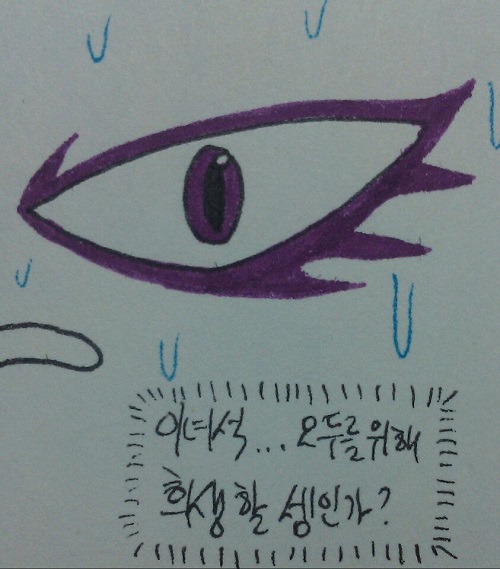 이녀석... 모두를 위해
희생 할 셈인가?